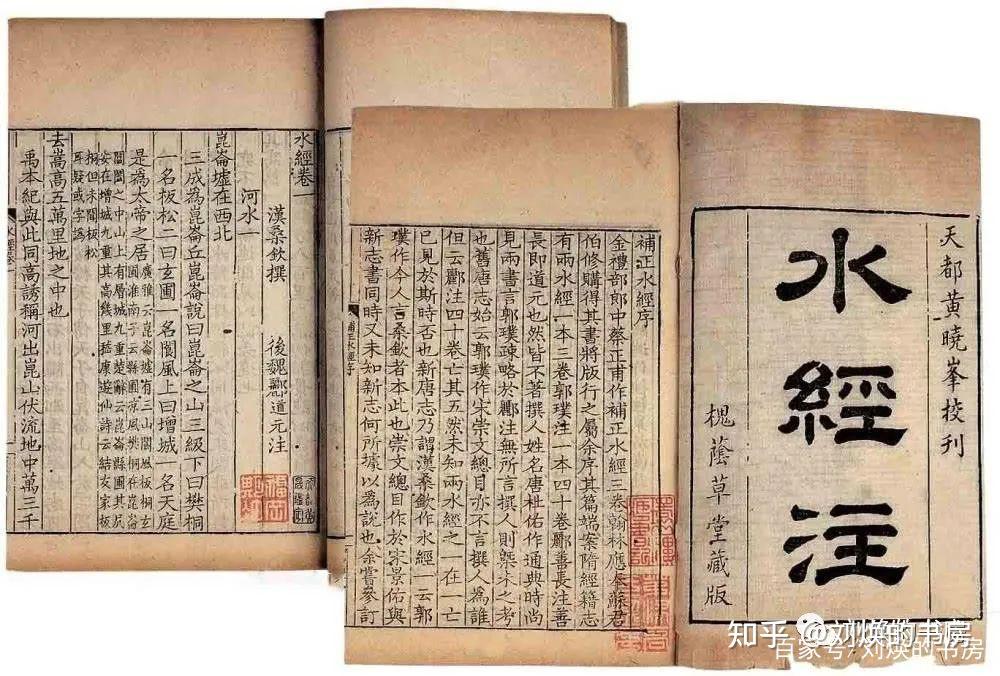 天都黃曉峯挍刊
水經注
槐蔭草堂藏版
補正水經序
金禮部郎中蔡正甫作補正水經三卷翰林應奉蘇君
伯修購得其書將版行之屬余序其篇端案隋經籍志
有兩水經一本三卷郭璞注一本四十卷酈善長注善
長即道元也然皆不著撰人姓名唐杜佑作通典時尚
見兩書言郭璞疎略於酈注無所言撰人則槩未之考
也舊唐志始云郭璞作宋崇文總目亦不言撰人為誰
但云酈注四十卷亡其五然未知兩水經之一在一亡
已見於斯時否也新唐志乃謂漢桑欽作水經一云郭
璞作今人言桑欽者本此也崇文總目作於宋景佑與
新志書同時又未如新志何所據以為說也余嘗參訂
水經卷一
漢桑欽撰 後魏酈道元注
河水一
崑崙墟在西北
三成為崑崙丘崑崙說曰崑崙之山三級下曰樊桐
一名板松二曰玄圃一名閬風上曰增城一名天庭
是為太帝之居
廣雅云崑崙墟有三山閬風板桐玄
圃淮南子云縣圃涼風樊桐在崑崙
閶闔之中山上有層城九重楚辭云崑崙縣圃其尻
安在增城九重其高幾里嵇康遊仙詩云結友家板
桐但未聞板松
耳疑或字譌
去嵩高五萬里地之中也
禹本紀與此同高誘稱河出崑山伏流地中萬三千
知乎 @刘焕的书房
百家号/刘焕的书房